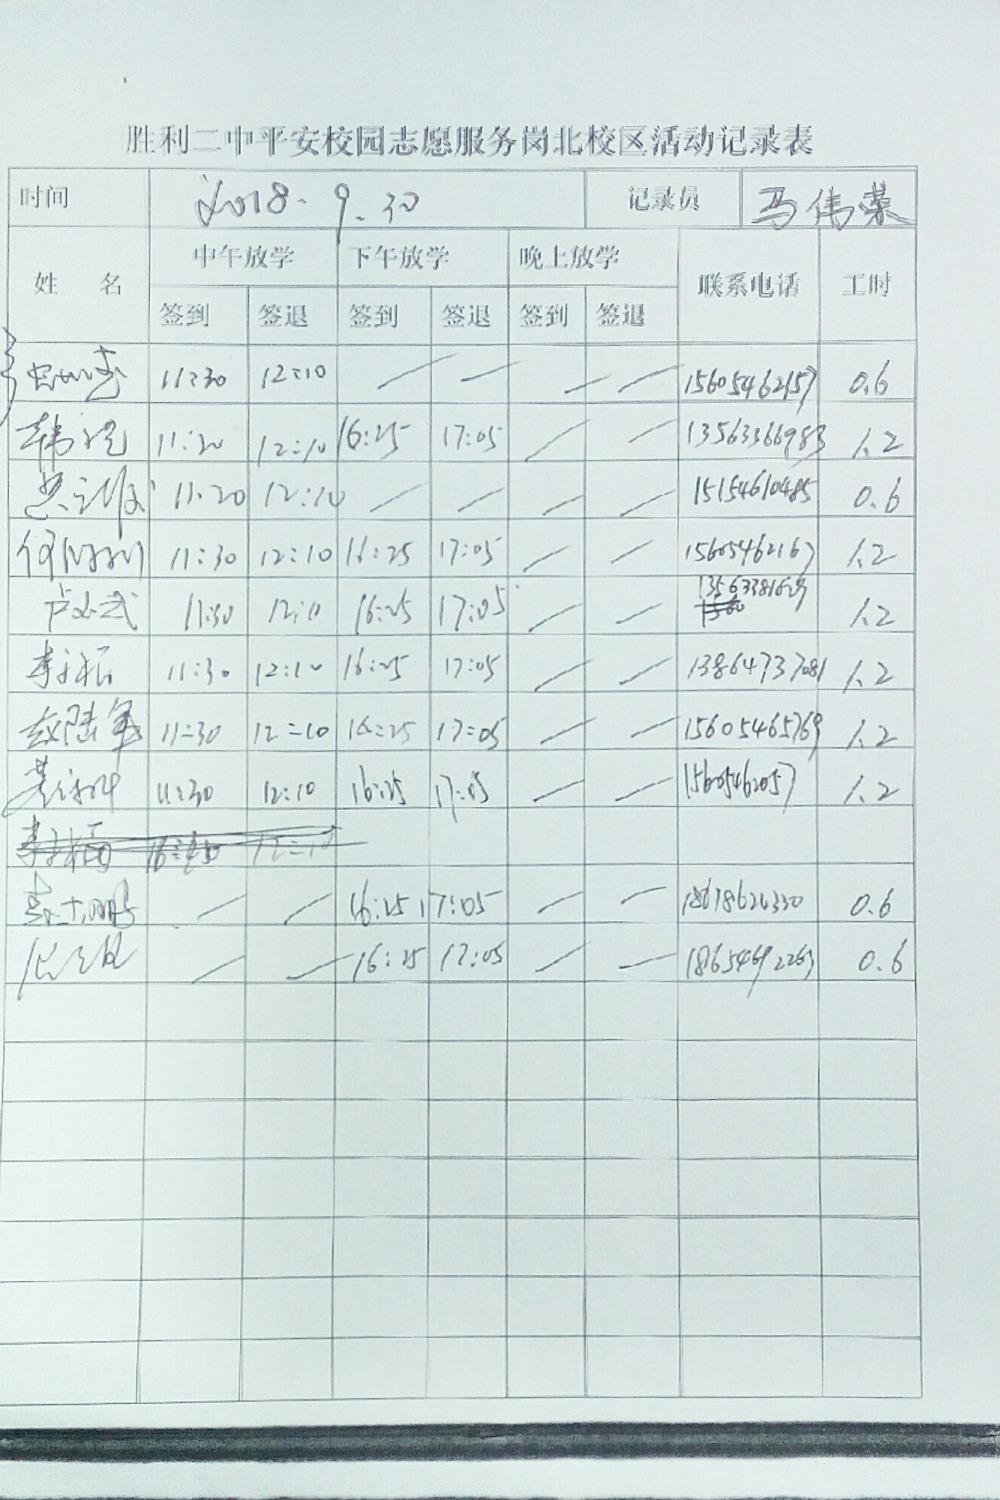 胜利二中平安校园志愿服务岗北校区活动记录表
时间 2018.9.30 记录员 马伟荣
姓 名 中午放学 下午放学 晚上放学 联系电话 工时
签到 签退 签到 签退 签到 签退
11:30 12:10 / / / / 15605462157 0.6
韩 11:20 12:10 16:25 17:05 / / 13563366983 1.2
11:20 12:10 / / / / 15154610485 0.6
何 11:30 12:10 16:25 17:05 / / 15605462167 1.2
卢 武 11:30 12:10 16:25 17:05 / / 1.2
李 振 11:30 12:10 16:25 17:05 / / 13864737081 1.2
赵陆军 11:30 12:10 16:25 17:05 / / 15605465769 1.2
11:30 12:10 16:25 17:05 / / 15605462057 1.2
李 福 12:10
/ / 16:25 17:05 / / 18678624330 0.6
/ / 16:25 17:05 / / 18654692263 0.6